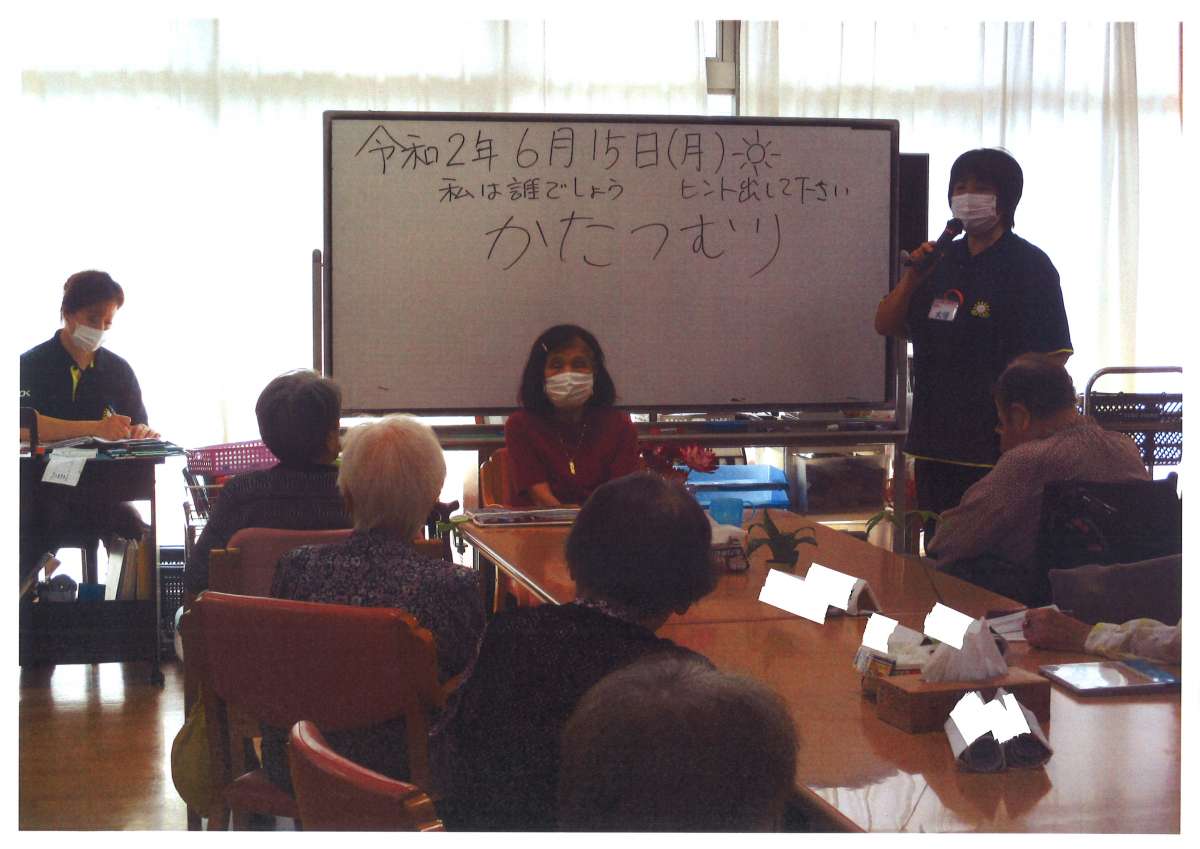 令和2年 6月15日(月)
私は誰でしょう ヒント出して下さい
かたつむり